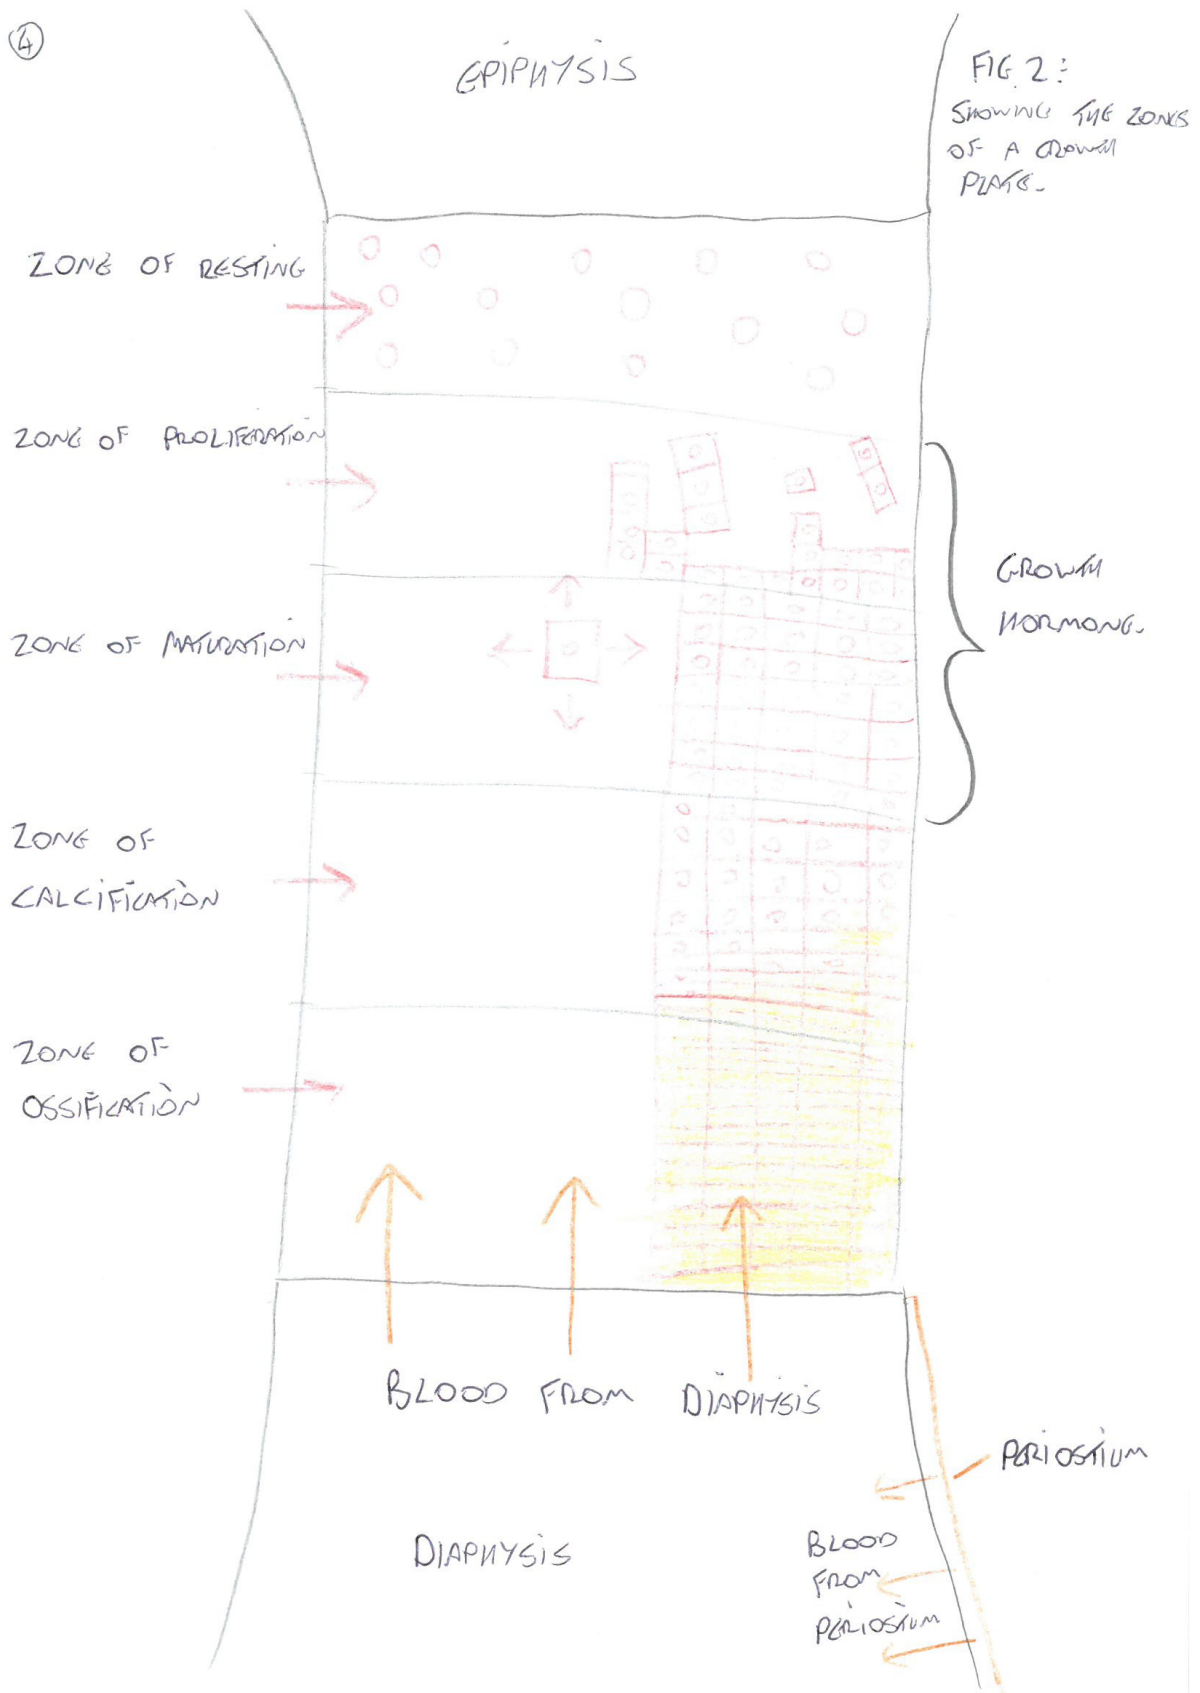 4
EPIPHYSIS
FIG 2:
SHOWING THE ZONES
OF A GROWTH
PLATE.
ZONE OF RESTING
ZONE OF PROLIFERATION
GROWTH
HORMONE.
ZONE OF MATURATION
ZONE OF
CALCIFICATION
ZONE OF
OSSIFICATION
BLOOD FROM DIAPHYSIS
PERIOSTIUM
DIAPHYSIS
BLOOD
FROM
PERIOSTIUM